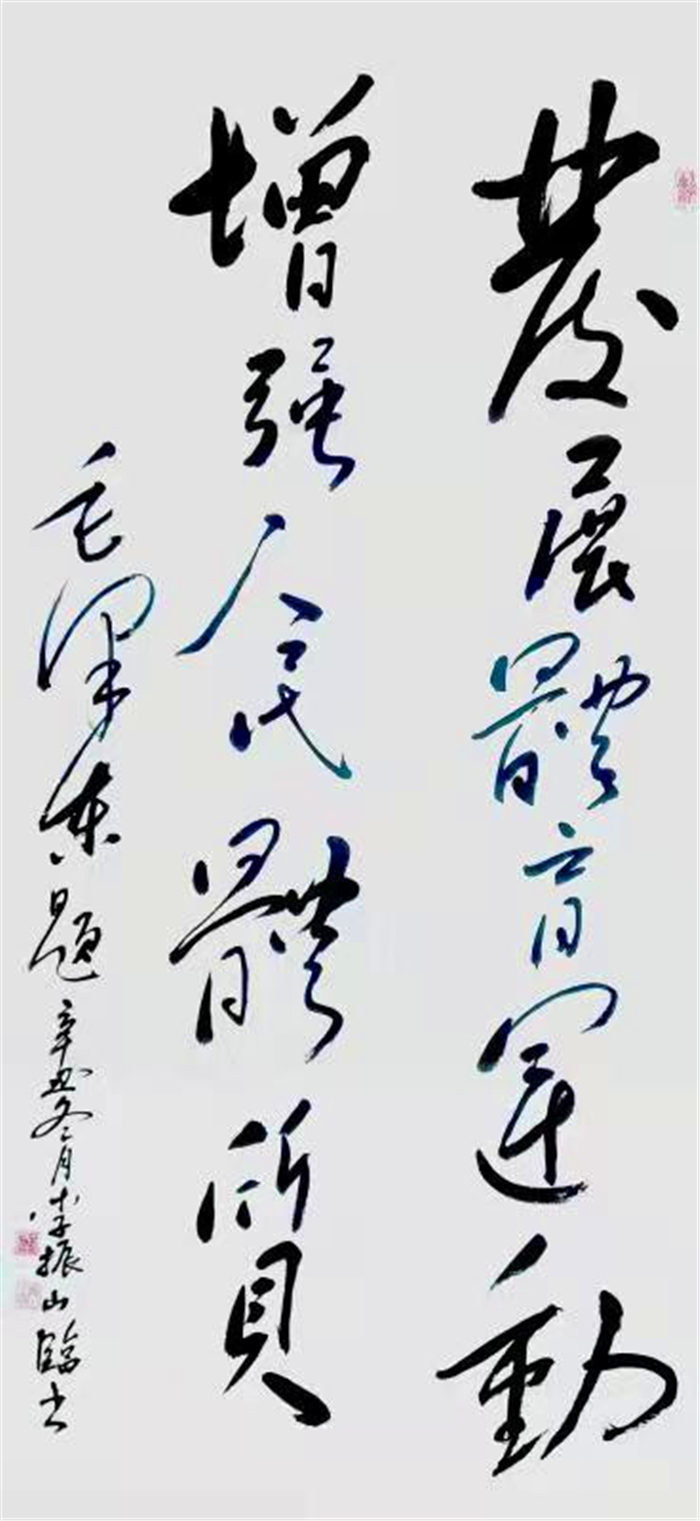 發展體育運動
增强人民體質
毛澤東題
辛丑冬月李振山臨書